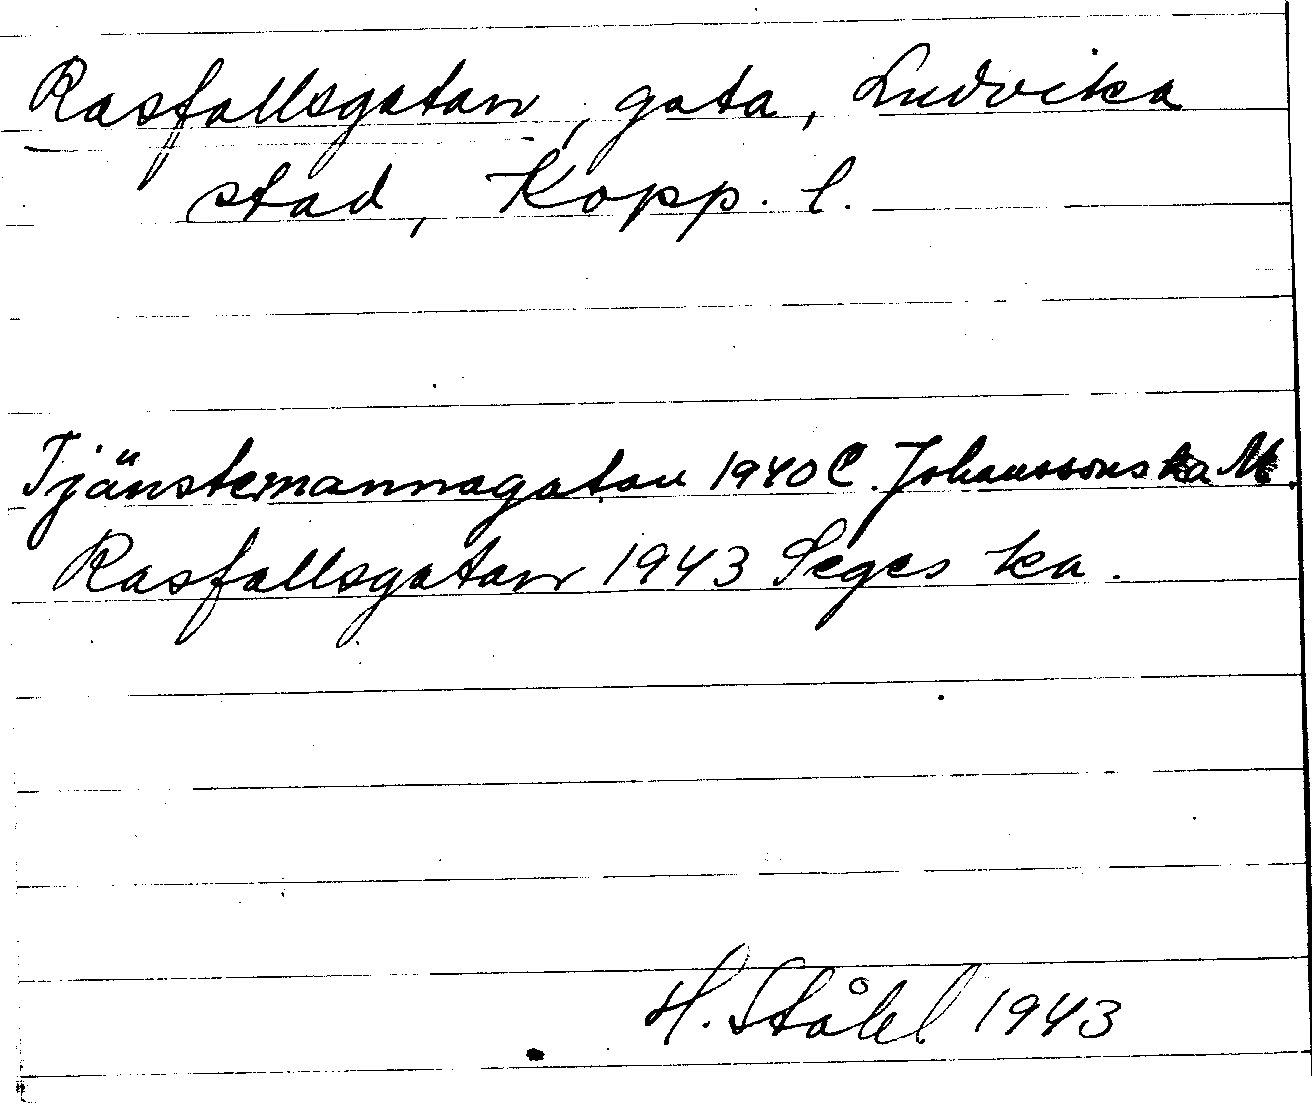 Rasfallsgatan, gata, Ludvika
stad, Kopp. l.
Tjänstemannagatan 1940 C. Johanssons ka
Rasfallsgatan 1943 Seges ka.
H. Ståhl 1943